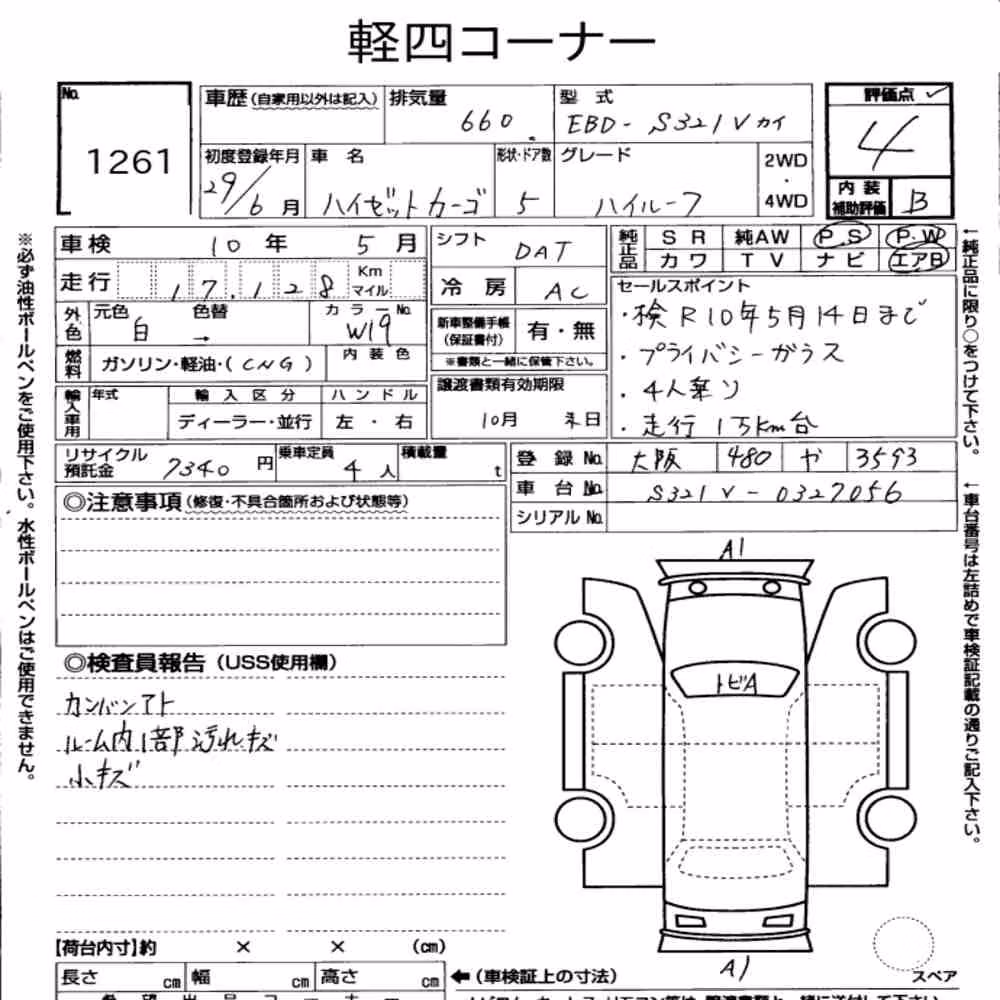 軽四コーナー
No. 1261
車歴（自家用以外は記入） 排気量 660 型式 EBD- S321Vカイ
評価点 ✓ 4
初度登録年月 29/6月 車名 ハイゼットカーゴ 形状・ドア数 5 グレード ハイルーフ 2WD・4WD
内装補助評価 B
車検 10年 5月
シフト DAT
純正品 SR 純AW P.S P.W
カワ TV ナビ エアB
走行 17,128 Km マイル
冷房 AC
外色 元色 白 色替 → カラーNo. W19
新車整備手帳（保証書付） 有・無
※書類と一緒に保管下さい。
燃料 ガソリン・軽油・（CNG） 内装色
セールスポイント
・検R10年5月14日まで
・プライバシーガラス
・4人乗り
・走行1万km台
譲渡書類有効期限 10月 末日
輸入車用 年式 輸入区分 ディーラー・並行 ハンドル 左・右
リサイクル預託金 7340円 乗車定員 4人 積載量 t
登録No. 大阪 480 や 3593
車台No. S321V-0327056
シリアルNo.
◎注意事項（修復・不具合箇所および状態等）
◎検査員報告（USS使用欄）
カンバンアト
ルーム内1部汚れキズ
小キズ
A1
トビA
A1
スペア
【荷台内寸】約 × × （cm）
長さ cm 幅 cm 高さ cm ←（車検証上の寸法）
※必ず油性ボールペンをご使用下さい。水性ボールペンはご使用できません。
←純正品に限り○をつけて下さい。
←車台番号は左詰めで車検証記載の通りご記入下さい。